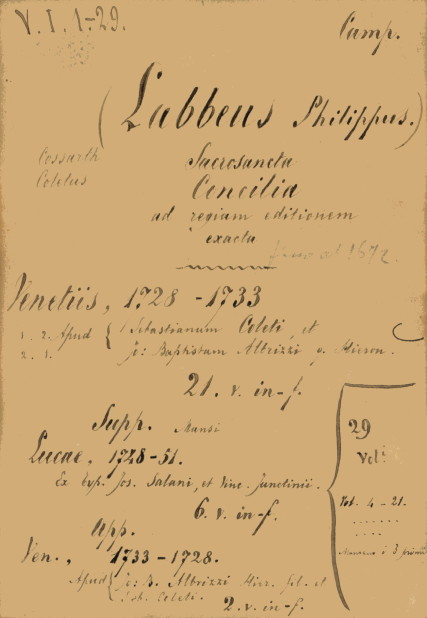 V. I. 1-29.
Camp.
(Labbeus Philippus.)
Cossarth
Coletus
Sacrosancta
Concilia
ad regiam editionem
exacta
fino al 1672.
Venetiis, 1728 - 1733
1. 2. Apud { Sebastianum Coleti, et
2. 3. Jo: Baptistam Albrizzi q. Hieron.
21. v. in-f.
Supp. Mansi
Lucae, 1748-51.
Ex typ. Jos. Salani, et Vinc. Junctinii.
6. v. in-f.
App.
Ven., 1733-1728.
Apud { Jo: B. Albrizzi Hier. fil. et
Seb. Coleti.
2. v. in-f.
29
Vol.
4 - 21.
i 3 primi